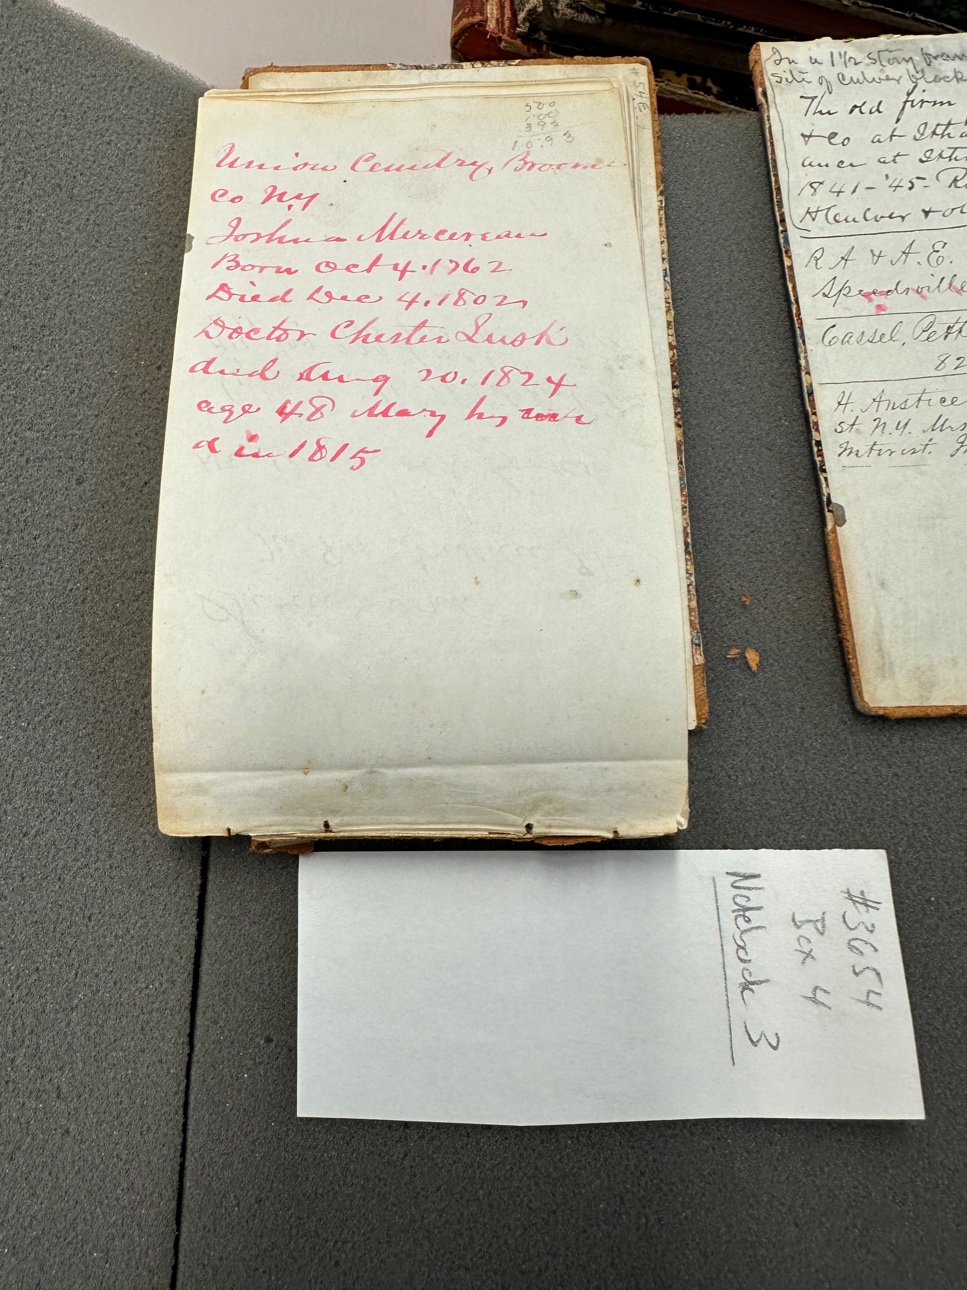 500
100
393
10.93
Union Cemetry, Broome
co N.Y
Joshua Mercereau
Born Oct 4. 1762
Died Dec 4. 1802
Doctor Chester Lusk
died Aug 20. 1824
age 48 Mary his
d in 1815
In a 1½ story fram
site of Culver block
The old firm
& Co at Itha
at Ith
1841-'45- R
H Culver & ol
R A & A. E.
Speedsville
Cassel, Peth
82
H. Austice
st N.Y. Mrs
Interest.
#3654
Box 4
Notebook 3